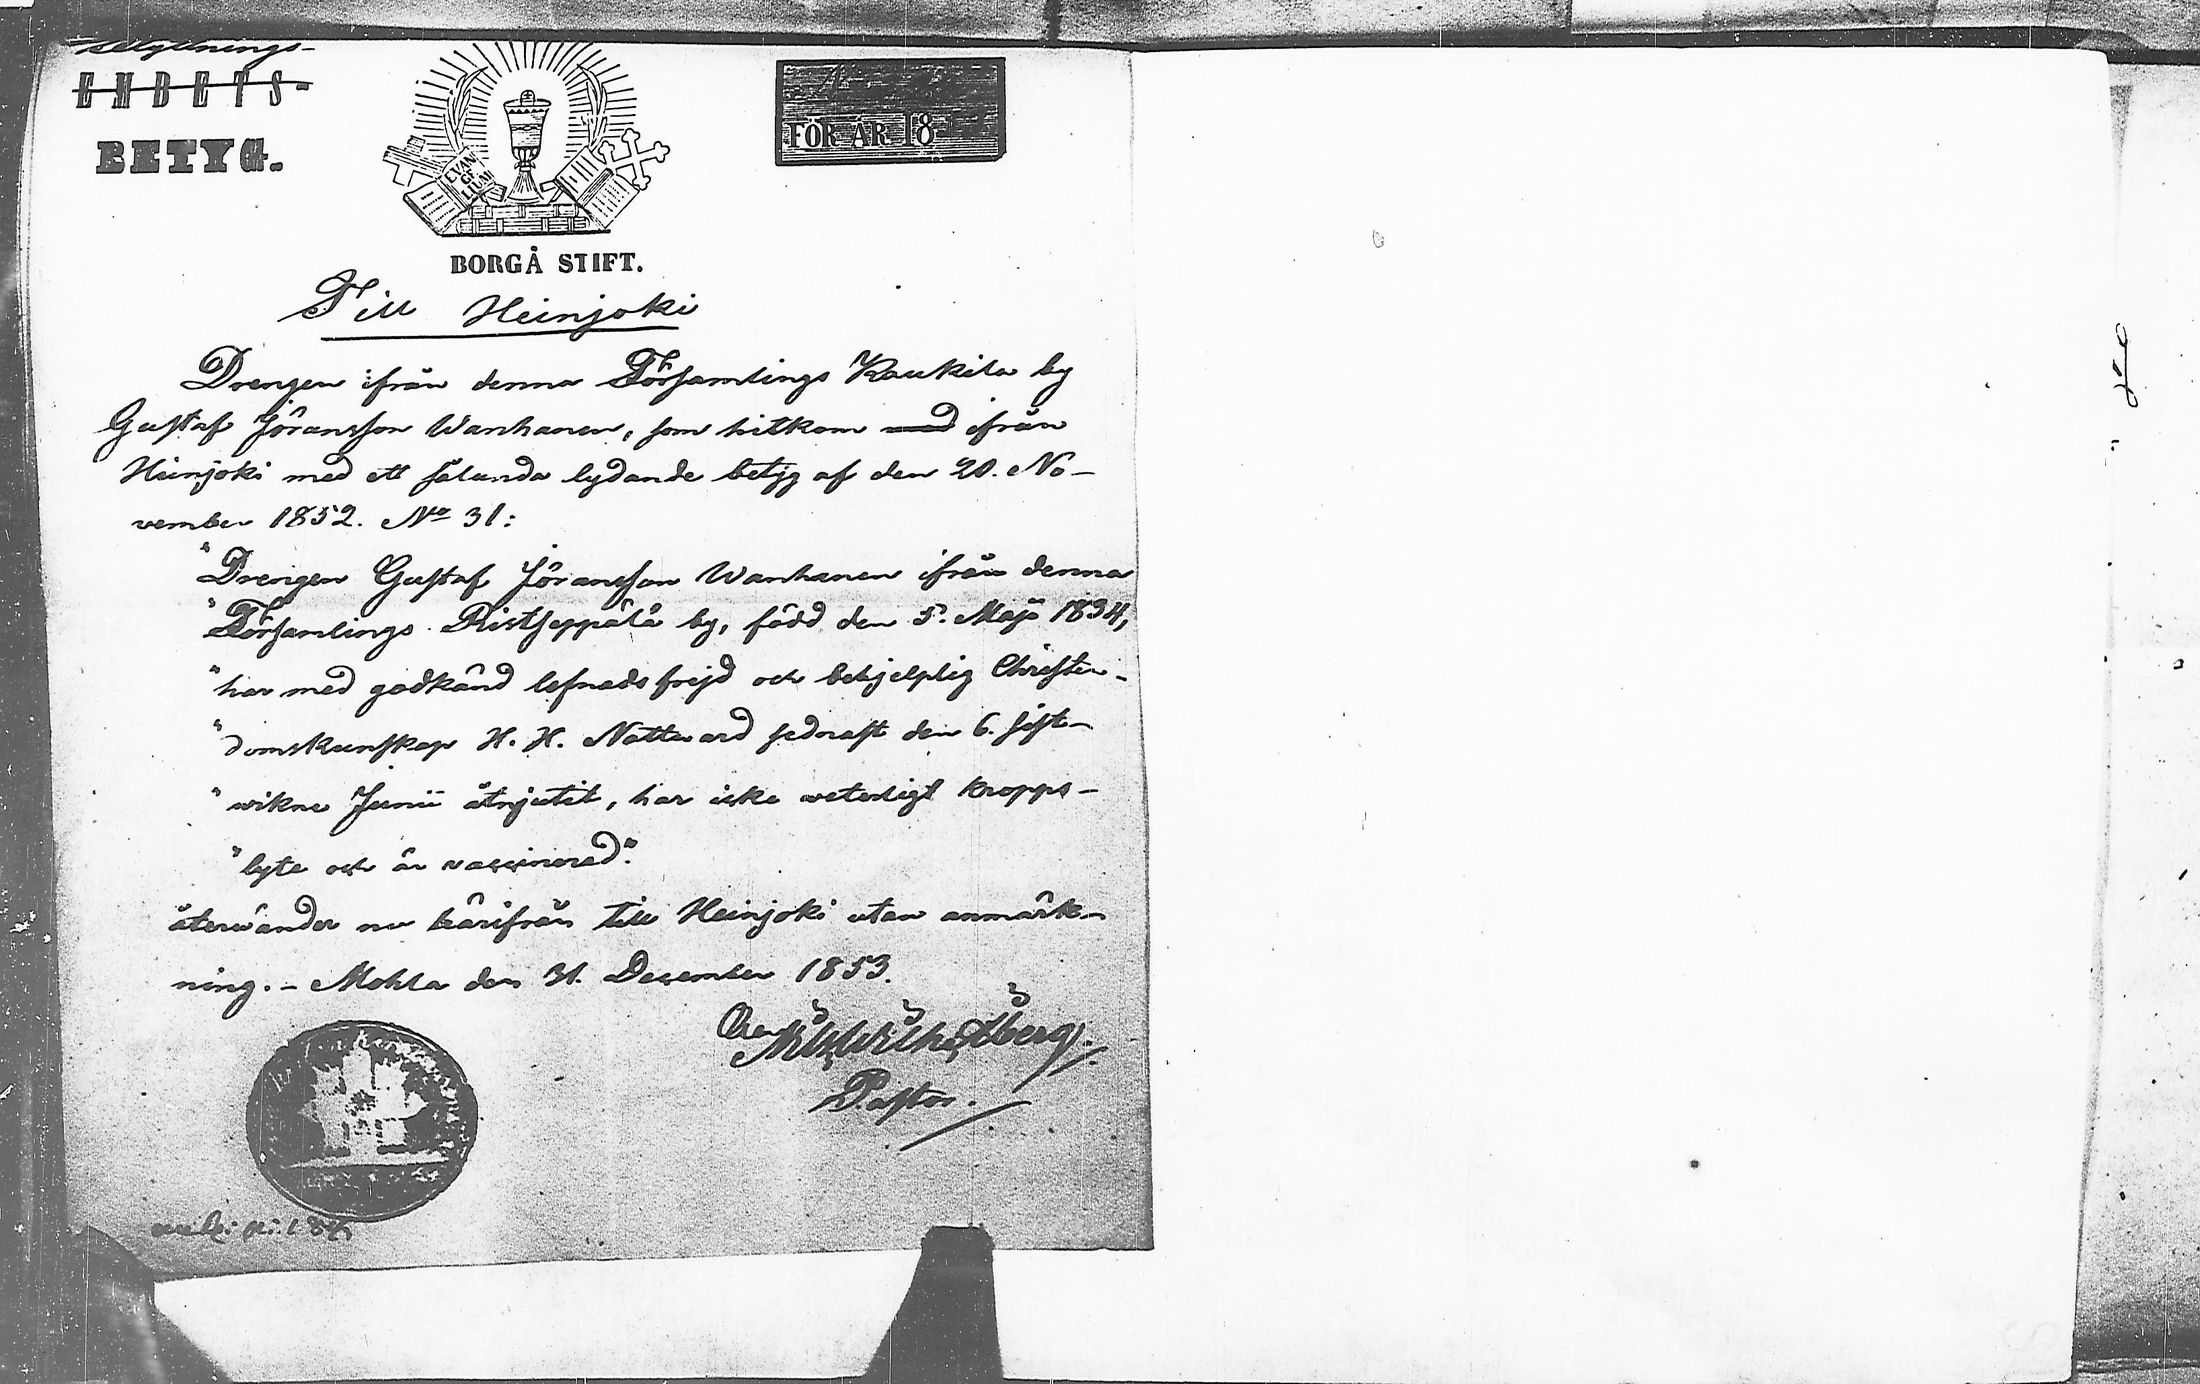 flyttnings-
EMBETS-
BETYG.
EVAN
GE
LIUM
FÖR ÅR 18
BORGÅ STIFT.
Till Heinjoki
Drengen ifrån denna Församlings Kaukila by
Gustaf Jöransson Wanhanen, som hitkom med ifrån
Heinjoki med ett sålunda lydande betyg af den 20. No-
vember 1852. No 31:
"Drengen Gustaf Jöransson Wanhanen ifrån denna
"Församlings Ristseppälä by, född den 5. Maji 1834,
"har med godkänd lefnadsfrejd och behjelplig Christen-
"domskunskap H. H. Nattward sednast den 6. sist-
"wikne Junii åtnjutit, har icke weterligt kropps-
"lyte och är vaccinerad."
återwänder nu härifrån till Heinjoki utan anmärk-
ning. - Mohla den 31. December 1853.
Pastor.